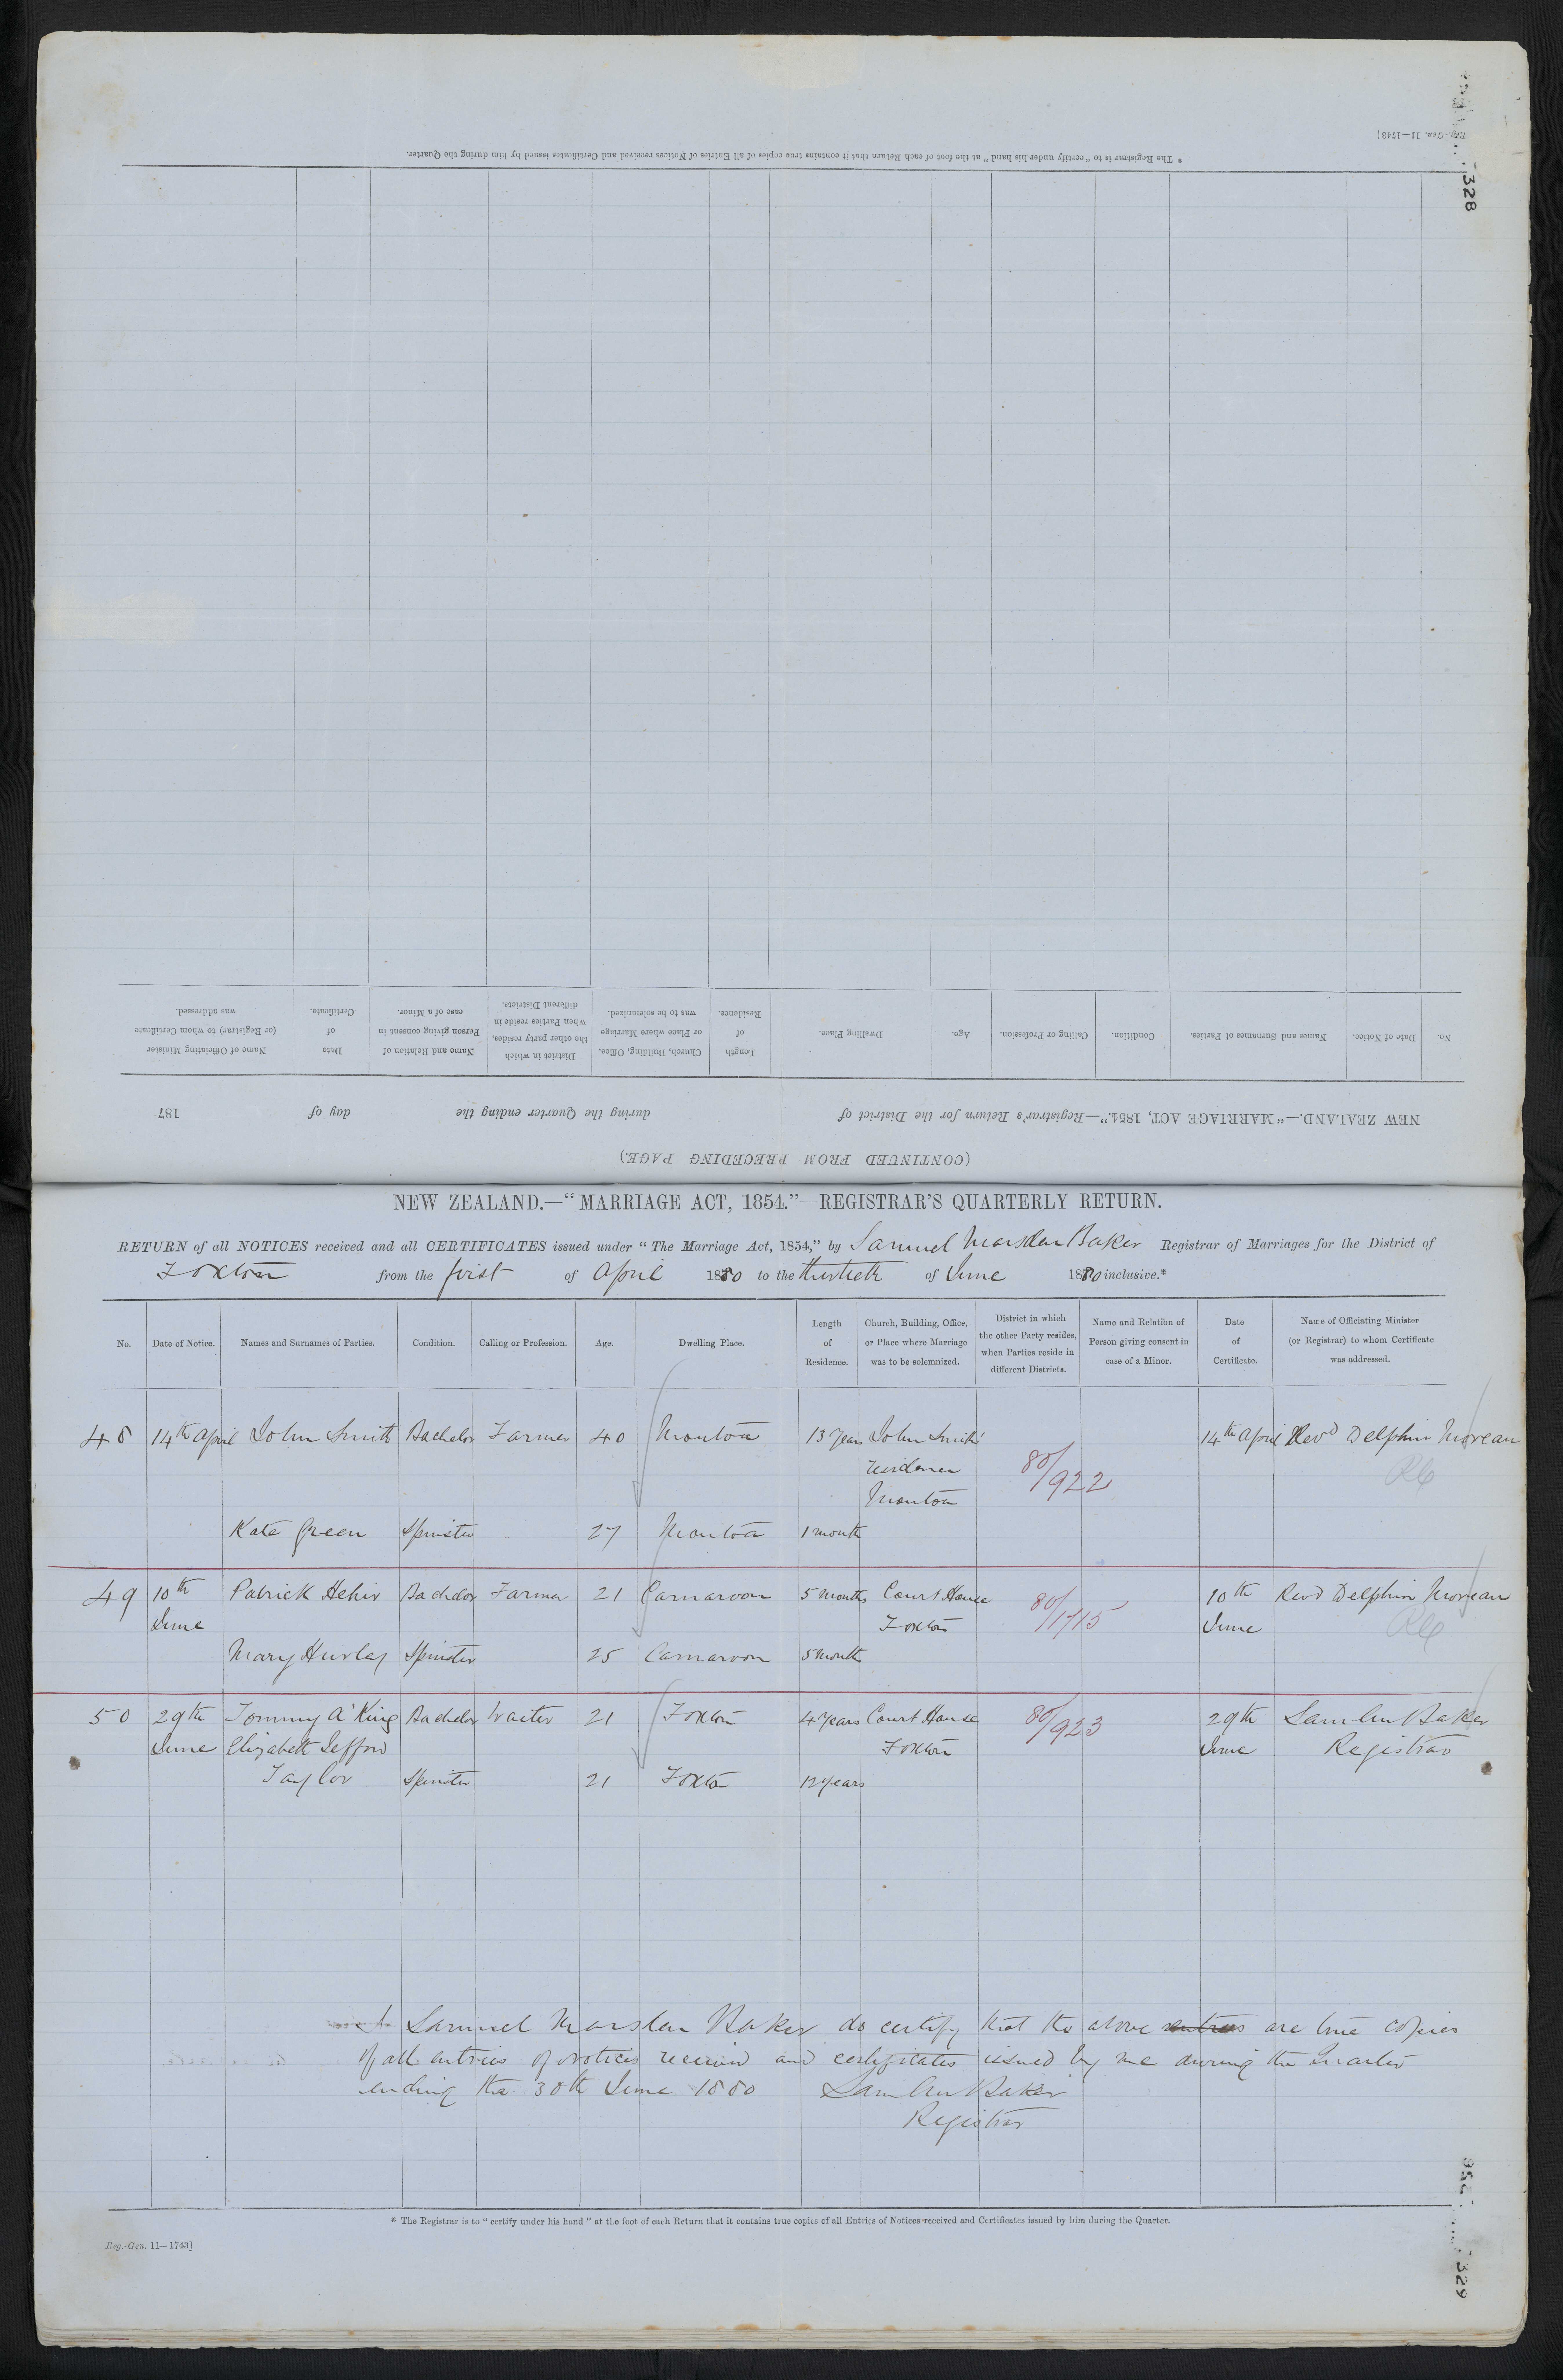 Reg.-Gen. 11—1743]
328
* The Registrar is to "certify under his hand" at the foot of each Return that it contains true copies of all Entries of Notices received and Certificates issued by him during the Quarter.
No. Date of Notice. Names and Surnames of Parties. Condition. Calling or Profession. Age. Dwelling Place. Length of Residence. Church, Building, Office, or Place where Marriage was to be solemnized. District in which the other party resides, when Parties reside in different Districts. Name and Relation of Person giving consent in case of a Minor. Date of Certificate. Name of Officiating Minister (or Registrar) to whom Certificate was addressed.
NEW ZEALAND.—"MARRIAGE ACT, 1854."—Registrar's Return for the District of during the Quarter ending the day of 187
(CONTINUED FROM PRECEDING PAGE.)
NEW ZEALAND.—"MARRIAGE ACT, 1854."—REGISTRAR'S QUARTERLY RETURN.
RETURN of all NOTICES received and all CERTIFICATES issued under "The Marriage Act, 1854," by Samuel Marsden Baker Registrar of Marriages for the District of
Foxton from the first of April 1880 to the thirtieth of June 1880 inclusive.*
No. Date of Notice. Names and Surnames of Parties. Condition. Calling or Profession. Age. Dwelling Place. Length of Residence. Church, Building, Office, or Place where Marriage was to be solemnized. District in which the other Party resides, when Parties reside in different Districts. Name and Relation of Person giving consent in case of a Minor. Date of Certificate. Name of Officiating Minister (or Registrar) to whom Certificate was addressed.
48 14th April John Smith Bachelor Farmer 40 Moutoa 13 Years John Smith's 14th April Revd Delphin Moreau
residence 80/922 RC
Moutoa
Kate Green Spinster 27 Moutoa 1 month
49 10th Patrick Hehir Bachelor Farmer 21 Carnarvon 5 months Court House 80/1715 10th Revd Delphin Moreau
June Foxton June RC
Mary Hurley Spinster 25 Carnarvon 5 months
50 29th Tommy A'King Bachelor Waiter 21 Foxton 4 Years Court House 80/923 29th Sam Mn Baker
June Elizabeth Sefford Foxton June Registrar
Taylor Spinster 21 Foxton 12 years
I Samuel Marsden Baker do certify that the above entries are true copies
of all entries of notices received and certificates issued by me during the Quarter
ending the 30th June 1880 Sam Mn Baker
Registrar
* The Registrar is to "certify under his hand" at the foot of each Return that it contains true copies of all Entries of Notices received and Certificates issued by him during the Quarter.
Reg.-Gen. 11—1743]
329